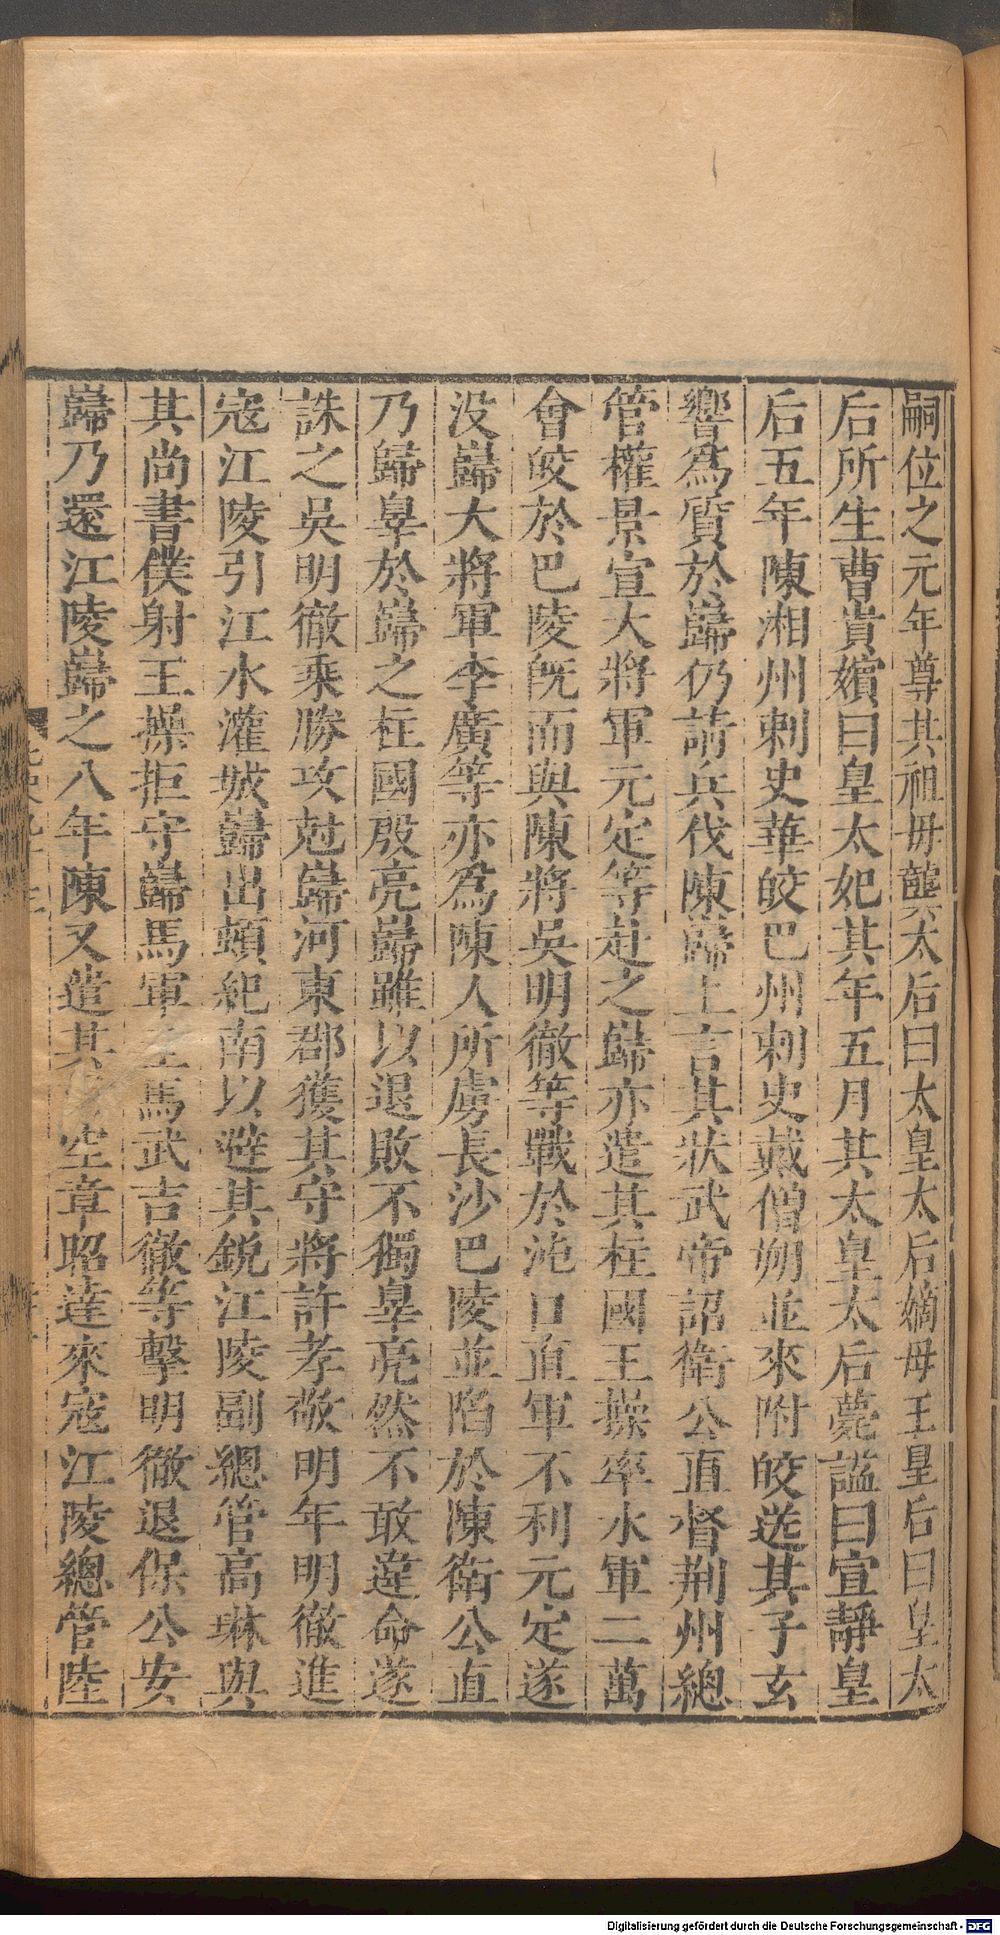 嗣位之元年尊其祖母龔太后曰太皇太后嫡母王皇后曰皇太
后所生曹貴嬪曰皇太妃其年五月其太皇太后薨諡曰宣靜皇
后五年陳湘州刺史華皎巴州刺史戴僧朔並來附皎送其子玄
響爲質於巋仍請兵伐陳巋上言其狀武帝詔衛公直督荆州總
管權景宣大將軍元定等赴之巋亦遣其柱國王操率水軍二萬
會皎於巴陵旣而與陳將吳明徹等戰於沌口直軍不利元定遂
没巋大將軍李廣等亦爲陳人所虜長沙巴陵並陷於陳衛公直
乃歸辠於巋之柱國殷亮巋雖以退敗不獨辠亮然不敢違命遂
誅之吳明徹乗勝攻尅巋河東郡獲其守將許孝敬明年明徹進
寇江陵引江水灌城巋出頓紀南以避其銳江陵副總管高琳與
其尚書僕射王操拒守巋馬軍主馬武吉徹等擊明徹退保公安
巋乃還江陵巋之八年陳又遣其空章昭達來寇江陵總管陸
Digitalisierung gefördert durch die Deutsche Forschungsgemeinschaft - DFG